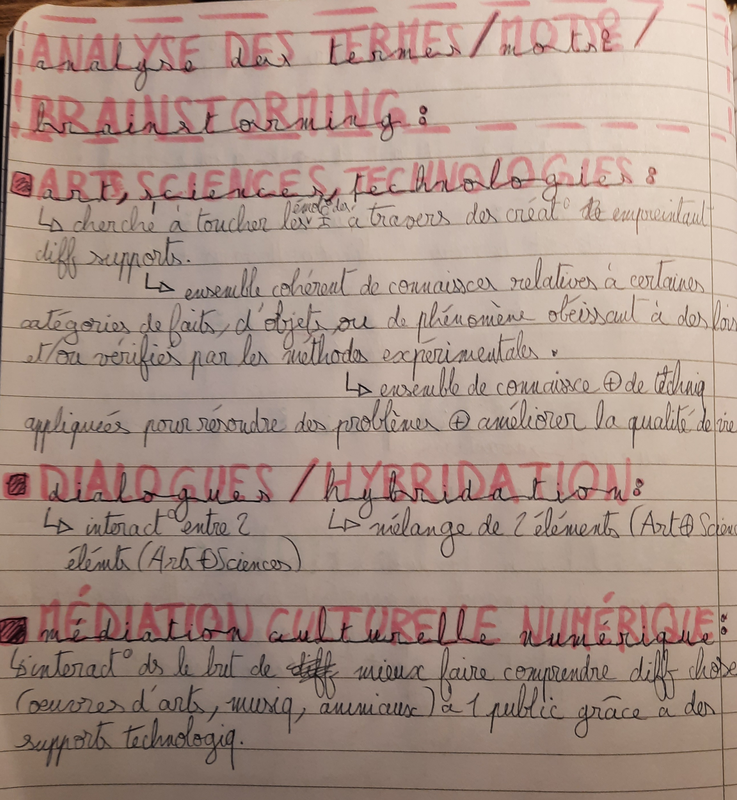 ANALYSE DES TERMES/MOTS?/
analyse des termes/mots?/
BRAINSTORMING:
brainstorming:
ART, SCIENCES, TECHNOLOGIES:
art, sciences, technologies:
↳ cherché à toucher les à travers des créat° empreintant
diff supports.
↳ ensemble cohérent de connaissces relatives à certaines
catégories de faits, d'objets, ou de phénomène obéissant à des lois
et/ou vérifiés par les méthodes expérimentales.
↳ ensemble de connaissce ⊕ de téchniq
appliqueés pour résoudre des problèmes ⊕ améliorer la qualité de vie
DIALOGUES/HYBRIDATION:
dialogues/hybridation:
↳ interact° entre 2 ↳ mélange de 2 éléments (Art ⊕ Scienc
élémts (Arts ⊕ Sciences)
MÉDIATION CULTURELLE NUMÉRIQUE:
médiation culturelle numérique:
↳ interact° ds le but de diff mieux faire comprendre diff chose
(oeuvres d'arts, musiq, animaux) à 1 public grâce a des
supports technologiq.